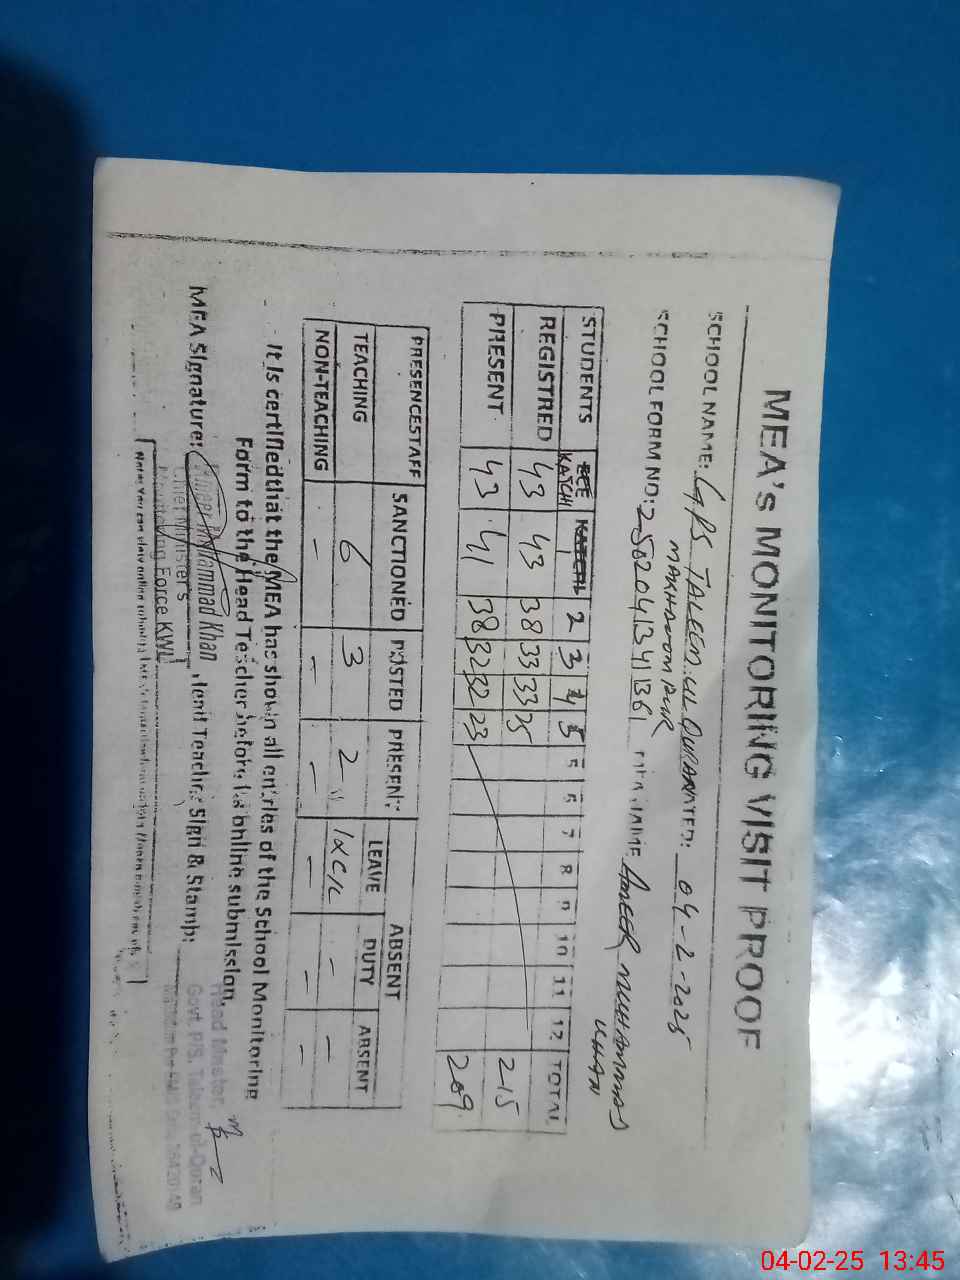 MEA's MONITORING VISIT PROOF
SCHOOL NAME: GPS TALEEM.UL QURAN DATED: 04-2-2025
MAKHDOOM PUR
SCHOOL FORM NO: NAME AMEER MUHAMMAD
KHAN
STUDENTS KATCHI 2 3 4 5 5 6 7 8 9 10 11 12 TOTAL
REGISTRED 43 43 38 33 33 25 215
PRESENT 43 41 38 32 32 23 209
PRESENCESTAFF SANCTIONED POSTED PRESENT ABSENT
LEAVE DUTY ABSENT
TEACHING 6 3 2 1xC/L - -
NON-TEACHING - - - - - -
It is certified that the MEA has shown all entries of the School Monitoring
Form to the Head Teacher before online submission.
MEA Signature: Ameer Muhammad Khan Teacher Sign & Stamp:
Chief Minister's
Monitoring Force KWL
Head Master,
Govt. P/S. Taleem-ul-Quran
Note: You can
04-02-25 13:45